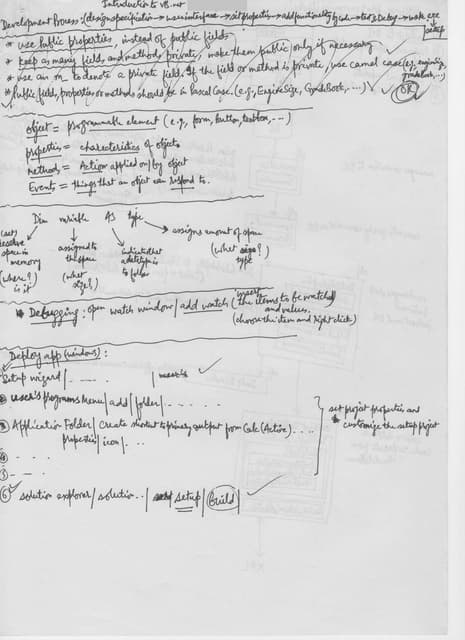 Introduction to VB.net
Development Process: (design specification → user interface → set properties → add functionality by code → test & Debug → make exe
setup
* use Public properties, instead of public fields.
* keep as many fields, and methods private, make them public only if necessary
* use an m to denote a private field. If the field or method is private, use camel case (e.g., engineSize,
gradeBook,...)
* Public field, properties or methods should be in Pascal Case. (e.g., EngineSize, GradeBook,...)
OR
object = programmable element (e.g., form, button, textbox,...)
properties = characteristics of objects
methods = Action applied on/by object
Events = things that an object can respond to.
Dim variable AS type → assigns amount of space
(what size?)
type
reserve
space in
memory
(where?)
is it
assigned to
the space
(what
size?)
indicates that
a datatype is
to follow
* Debugging: open watch window/ add watch (the items to be watched
insert
and values.
(choose the item and right click)
Deploy app (windows):
Setup wizard/ . . . . / user's
② user's programs menu/ add/ folder/ . . . . .
③ Application Folder/ Create shortcut to primary output from Calc (Active) . . .
properties/ icon/ . . .
set project properties and
customize the setup project
④ - - -
⑤ - - -
⑥ solution explorer/ solution . . / setup/ Build/